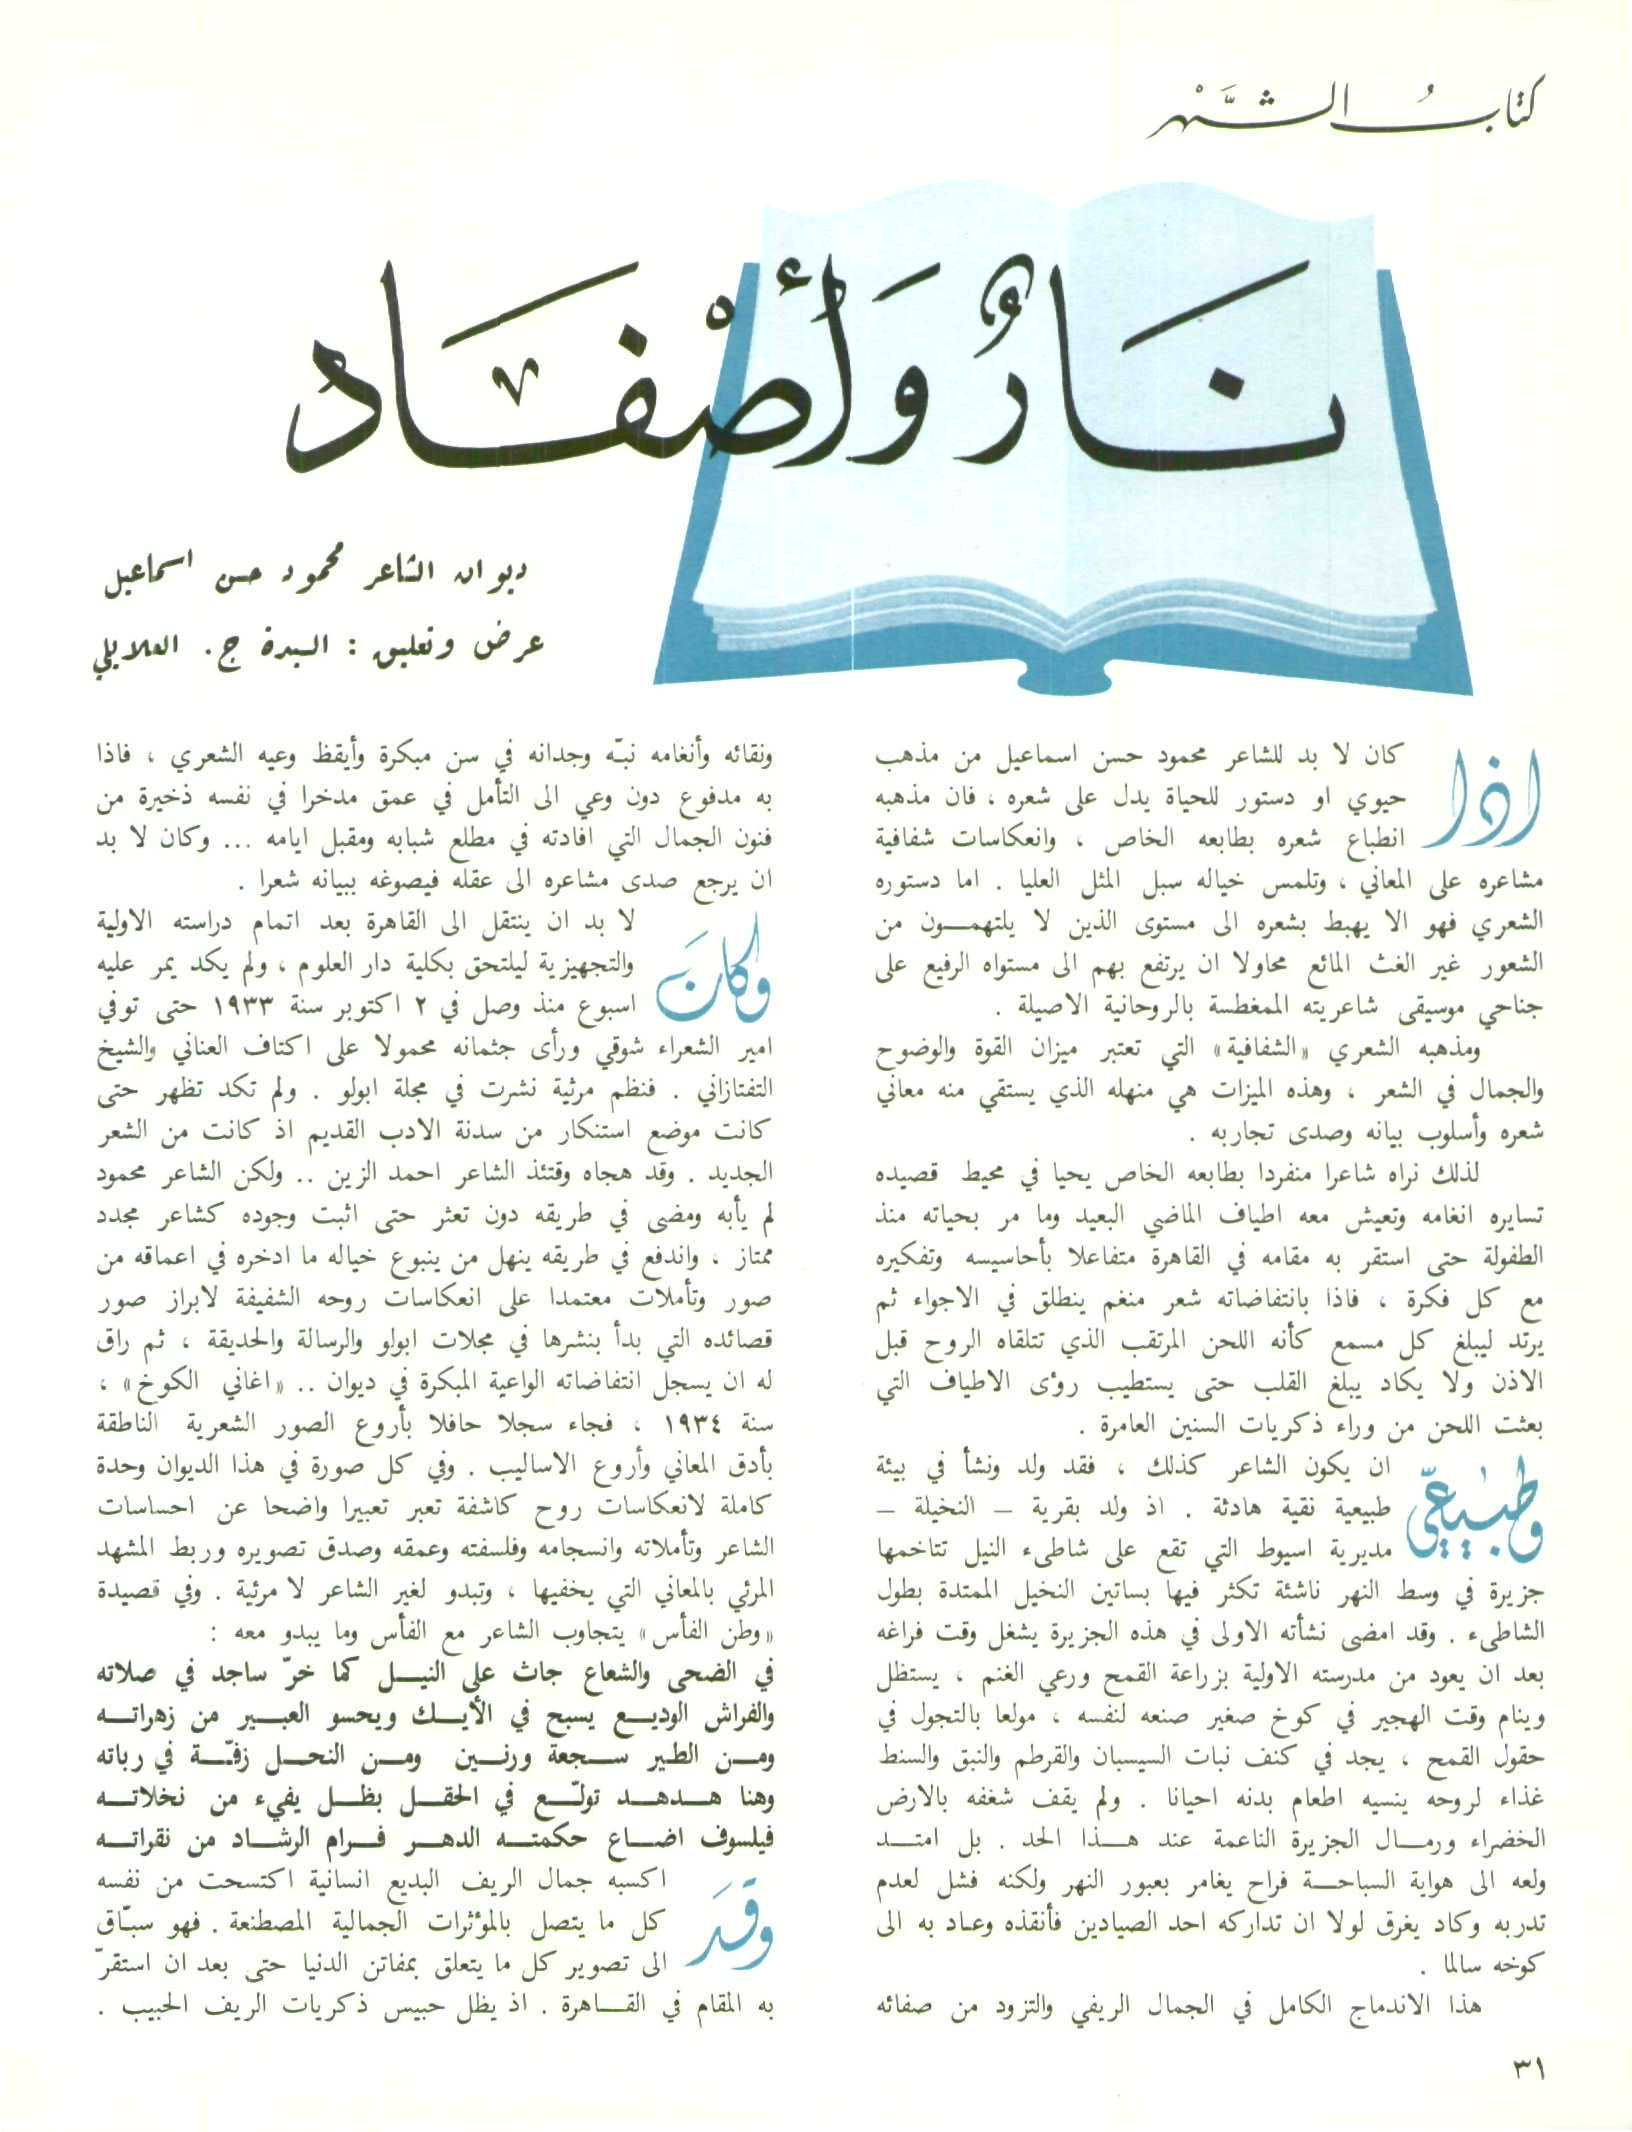 كتابُ الشَّهْر
نَارٌ وَأَصْفَاد
ديوان الشاعر محمود حسن اسماعيل
عرض وتعليق : السيدة ج. العلايلي
اذا كان لا بد للشاعر محمود حسن اسماعيل من مذهب
حيوي او دستور للحياة يدل على شعره ، فان مذهبه
انطباع شعره بطابعه الخاص ، وانعكاسات شفافية
مشاعره على المعاني ، وتلمس خياله سبل المثل العليا . اما دستوره
الشعري فهو الا يهبط بشعره الى مستوى الذين لا يلتهمون من
الشعور غير الغث المائع محاولا ان يرتفع بهم الى مستواه الرفيع على
جناحي موسيقى شاعريته الممغطسة بالروحانية الاصيلة .
ومذهبه الشعري «الشفافية» التي تعتبر ميزان القوة والوضوح
والجمال في الشعر ، وهذه الميزات هي منهله الذي يستقي منه معاني
شعره وأسلوب بيانه وصدى تجاربه .
لذلك نراه شاعرا منفردا بطابعه الخاص يحيا في محيط قصيده
تسايره انغامه وتعيش معه اطياف الماضي البعيد وما مر بحياته منذ
الطفولة حتى استقر به مقامه في القاهرة متفاعلا بأحاسيسه وتفكيره
مع كل فكرة ، فاذا بانتفاضاته شعر منغم ينطلق في الاجواء ثم
يرتد ليبلغ كل مسمع كأنه اللحن المرتقب الذي تتلقاه الروح قبل
الاذن ولا يكاد يبلغ القلب حتى يستطيب رؤى الاطياف التي
بعثت اللحن من وراء ذكريات السنين العامرة .
وطبيعيّ ان يكون الشاعر كذلك ، فقد ولد ونشأ في بيئة
طبيعية نقية هادئة . اذ ولد بقرية – النخيلة –
مديرية اسيوط التي تقع على شاطىء النيل تتاخمها
جزيرة في وسط النهر ناشئة تكثر فيها بساتين النخيل الممتدة بطول
الشاطىء . وقد امضى نشأته الاولى في هذه الجزيرة يشغل وقت فراغه
بعد ان يعود من مدرسته الاولية بزراعة القمح ورعي الغنم ، يستظل
وينام وقت الهجير في كوخ صغير صنعه لنفسه ، مولعا بالتجول في
حقول القمح ، يجد في كنف نبات السيسبان والقرطم والنبق والسنط
غذاء لروحه ينسيه اطعام بدنه احيانا . ولم يقف شغفه بالارض
الخضراء ورمال الجزيرة الناعمة عند هذا الحد . بل امتد
ولعه الى هواية السباحة فراح يغامر بعبور النهر ولكنه فشل لعدم
تدربه وكاد يغرق لولا ان تداركه احد الصيادين فأنقذه وعاد به الى
كوخه سالما .
هذا الاندماج الكامل في الجمال الريفي والتزود من صفائه
ونقائه وأنغامه نبّه وجدانه في سن مبكرة وأيقظ وعيه الشعري ، فاذا
به مدفوع دون وعي الى التأمل في عمق مدخرا في نفسه ذخيرة من
فنون الجمال التي افادته في مطلع شبابه ومقبل ايامه ... وكان لا بد
ان يرجع صدى مشاعره الى عقله فيصوغه ببيانه شعرا .
وكانَ لا بد ان ينتقل الى القاهرة بعد اتمام دراسته الاولية
والتجهيزية ليلتحق بكلية دار العلوم ، ولم يكد يمر عليه
اسبوع منذ وصل في ٢ اكتوبر سنة ١٩٣٣ حتى توفي
امير الشعراء شوقي ورأى جثمانه محمولا على اكتاف العناني والشيخ
التفتازاني . فنظم مرثية نشرت في مجلة ابولو . ولم تكد تظهر حتى
كانت موضع استنكار من سدنة الادب القديم اذ كانت من الشعر
الجديد . وقد هجاه وقتئذ الشاعر احمد الزين .. ولكن الشاعر محمود
لم يأبه ومضى في طريقه دون تعثر حتى اثبت وجوده كشاعر مجدد
ممتاز ، واندفع في طريقه ينهل من ينبوع خياله ما ادخره في اعماقه من
صور وتأملات معتمدا على انعكاسات روحه الشفيفة لابراز صور
قصائده التي بدأ بنشرها في مجلات ابولو والرسالة والحديقة ، ثم راق
له ان يسجل انتفاضاته الواعية المبكرة في ديوان .. «اغاني الكوخ» ،
سنة ١٩٣٤ ، فجاء سجلا حافلا بأروع الصور الشعرية الناطقة
بأدق المعاني وأروع الاساليب . وفي كل صورة في هذا الديوان وحدة
كاملة لانعكاسات روح كاشفة تعبر تعبيرا واضحا عن احساسات
الشاعر وتأملاته وانسجامه وفلسفته وعمقه وصدق تصويره وربط المشهد
المرئي بالمعاني التي يخفيها ، وتبدو لغير الشاعر لا مرئية . وفي قصيدة
«وطن الفأس» يتجاوب الشاعر مع الفأس وما يبدو معه :
في الضحى والشعاع جاث على النيل كما خرّ ساجد في صلاته
والفراش الوديع يسبح في الأيك ويحسو العبير من زهراته
ومن الطير سجعة ورنين ومن النحل زفّة في رباته
وهنا هدهد تولّع في الحقل بظل يفيء من نخلاته
فيلسوف اضاع حكمته الدهر فرام الرشاد من نقراته
وقَد اكسبه جمال الريف البديع انسانية اكتسحت من نفسه
كل ما يتصل بالمؤثرات الجمالية المصطنعة . فهو سبّاق
الى تصوير كل ما يتعلق بمفاتن الدنيا حتى بعد ان استقرّ
به المقام في القاهرة . اذ يظل حبيس ذكريات الريف الحبيب .
٣١